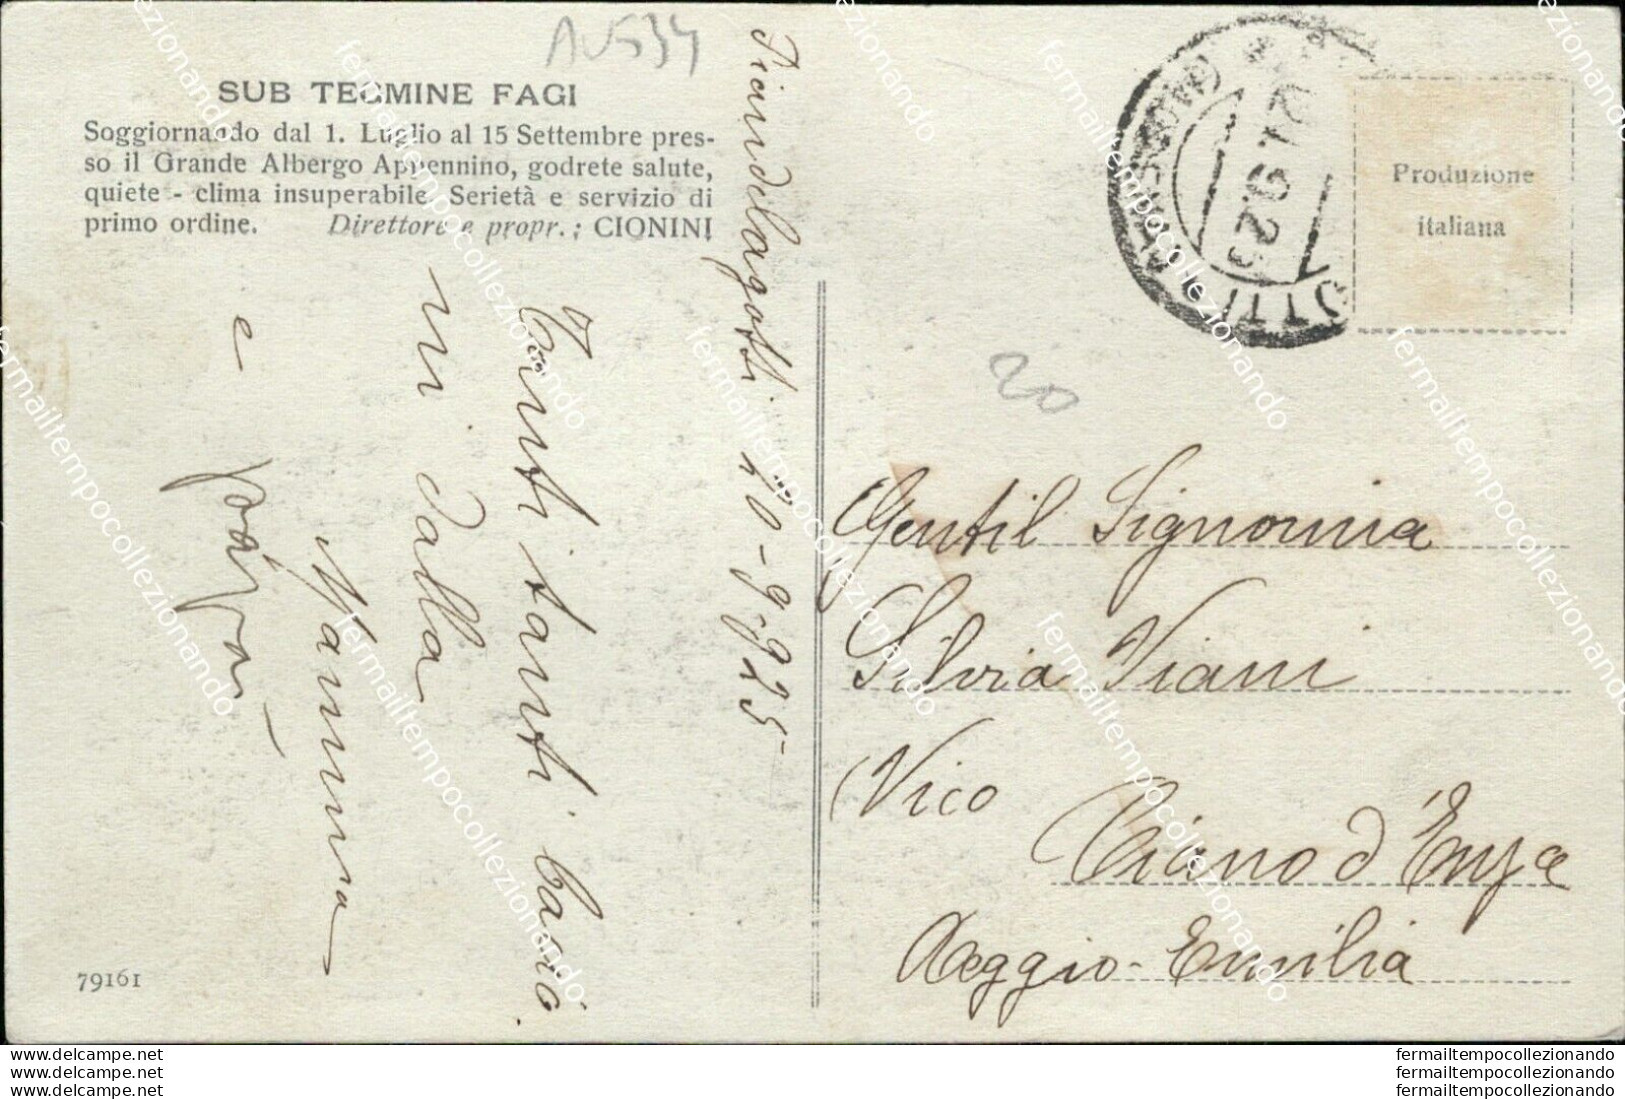 AU534
SUB TEGMINE FAGI
Soggiornando dal 1. Luglio al 15 Settembre pres-
so il Grande Albergo Appennino, godrete salute,
quiete - clima insuperabile. Serietà e servizio di
primo ordine. Direttore e propr.: CIONINI
Piandelagotti. 10-9-925
Tanti tanti bacio
ni dalla
Mamma
e
79161
Produzione
italiana
20
Gentil Signorina
Silvia Viani
(Vico
Ciano d'Enza
Reggio-Emilia
www.delcampe.net
www.delcampe.net
www.delcampe.net
fermailtempocollezionando
fermailtempocollezionando
fermailtempocollezionando